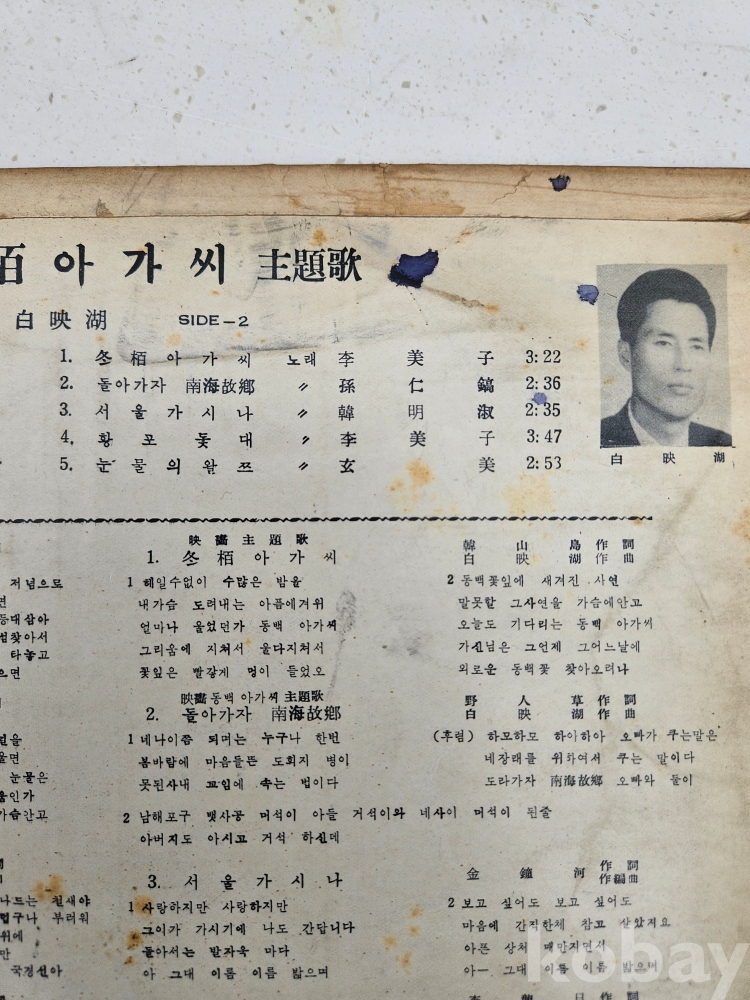 栢아가씨 主題歌
白映湖 SIDE-2
1. 冬栢아가씨 노래 李美子 3:22
2. 돌아가자 南海故鄕 〃 孫仁鎬 2:36
3. 서울가시나 〃 韓明淑 2:35
4. 황포돛대 〃 李美子 3:47
5. 눈물의왈쯔 〃 玄美 2:53
白映湖
映畵主題歌
1. 冬栢아가씨
韓山島作詞
白映湖作曲
1 헤일수없이 수많은 밤을
내가슴 도려내는 아픔에겨워
얼마나 울었던가 동백 아가씨
그리움에 지쳐서 울다지쳐서
꽃잎은 빨갛게 멍이 들었오
2 동백꽃잎에 새겨진 사연
말못할 그사연을 가슴에안고
오늘도 기다리는 동백 아가씨
가신님은 그언제 그어느날에
외로운 동백꽃 찾아오려나
映畵 동백 아가씨 主題歌
2. 돌아가자 南海故鄕
野人草作詞
白映湖作曲
1 네나이쯤 되며는 누구나 한번
봄바람에 마음들뜬 도회지 병이
못된사내 꼬임에 속는 법이다
(후렴) 하모하모 하이하아 오빠가 주는말은
네장래를 위하여서 주는 말이다
도라가자 南海故鄕 오빠와 둘이
2 남해포구 뱃사공 머석이 아들 거석이와 네사이 머석이 된줄
아버지도 아시고 거석 하신데
3. 서울가시나
金鐘河 作詞
作編曲
1 사랑하지만 사랑하지만
그이가 가시기에 나도 간답니다
돌아서는 발자욱 마다
아 그대 이름 이름 밟으며
2 보고 싶어도 보고 싶어도
마음에 간직한체 참고 살았지요
아픈 상처 매만지면서
아— 그대 이름 이름 밟으며
저넘으로
면
등대삼아
섬찾아서
타놓고
으면
월을
울면
눈물은
움인가
가슴안고
나드는 철새야
부러워
위에
만
국경선아
kobay